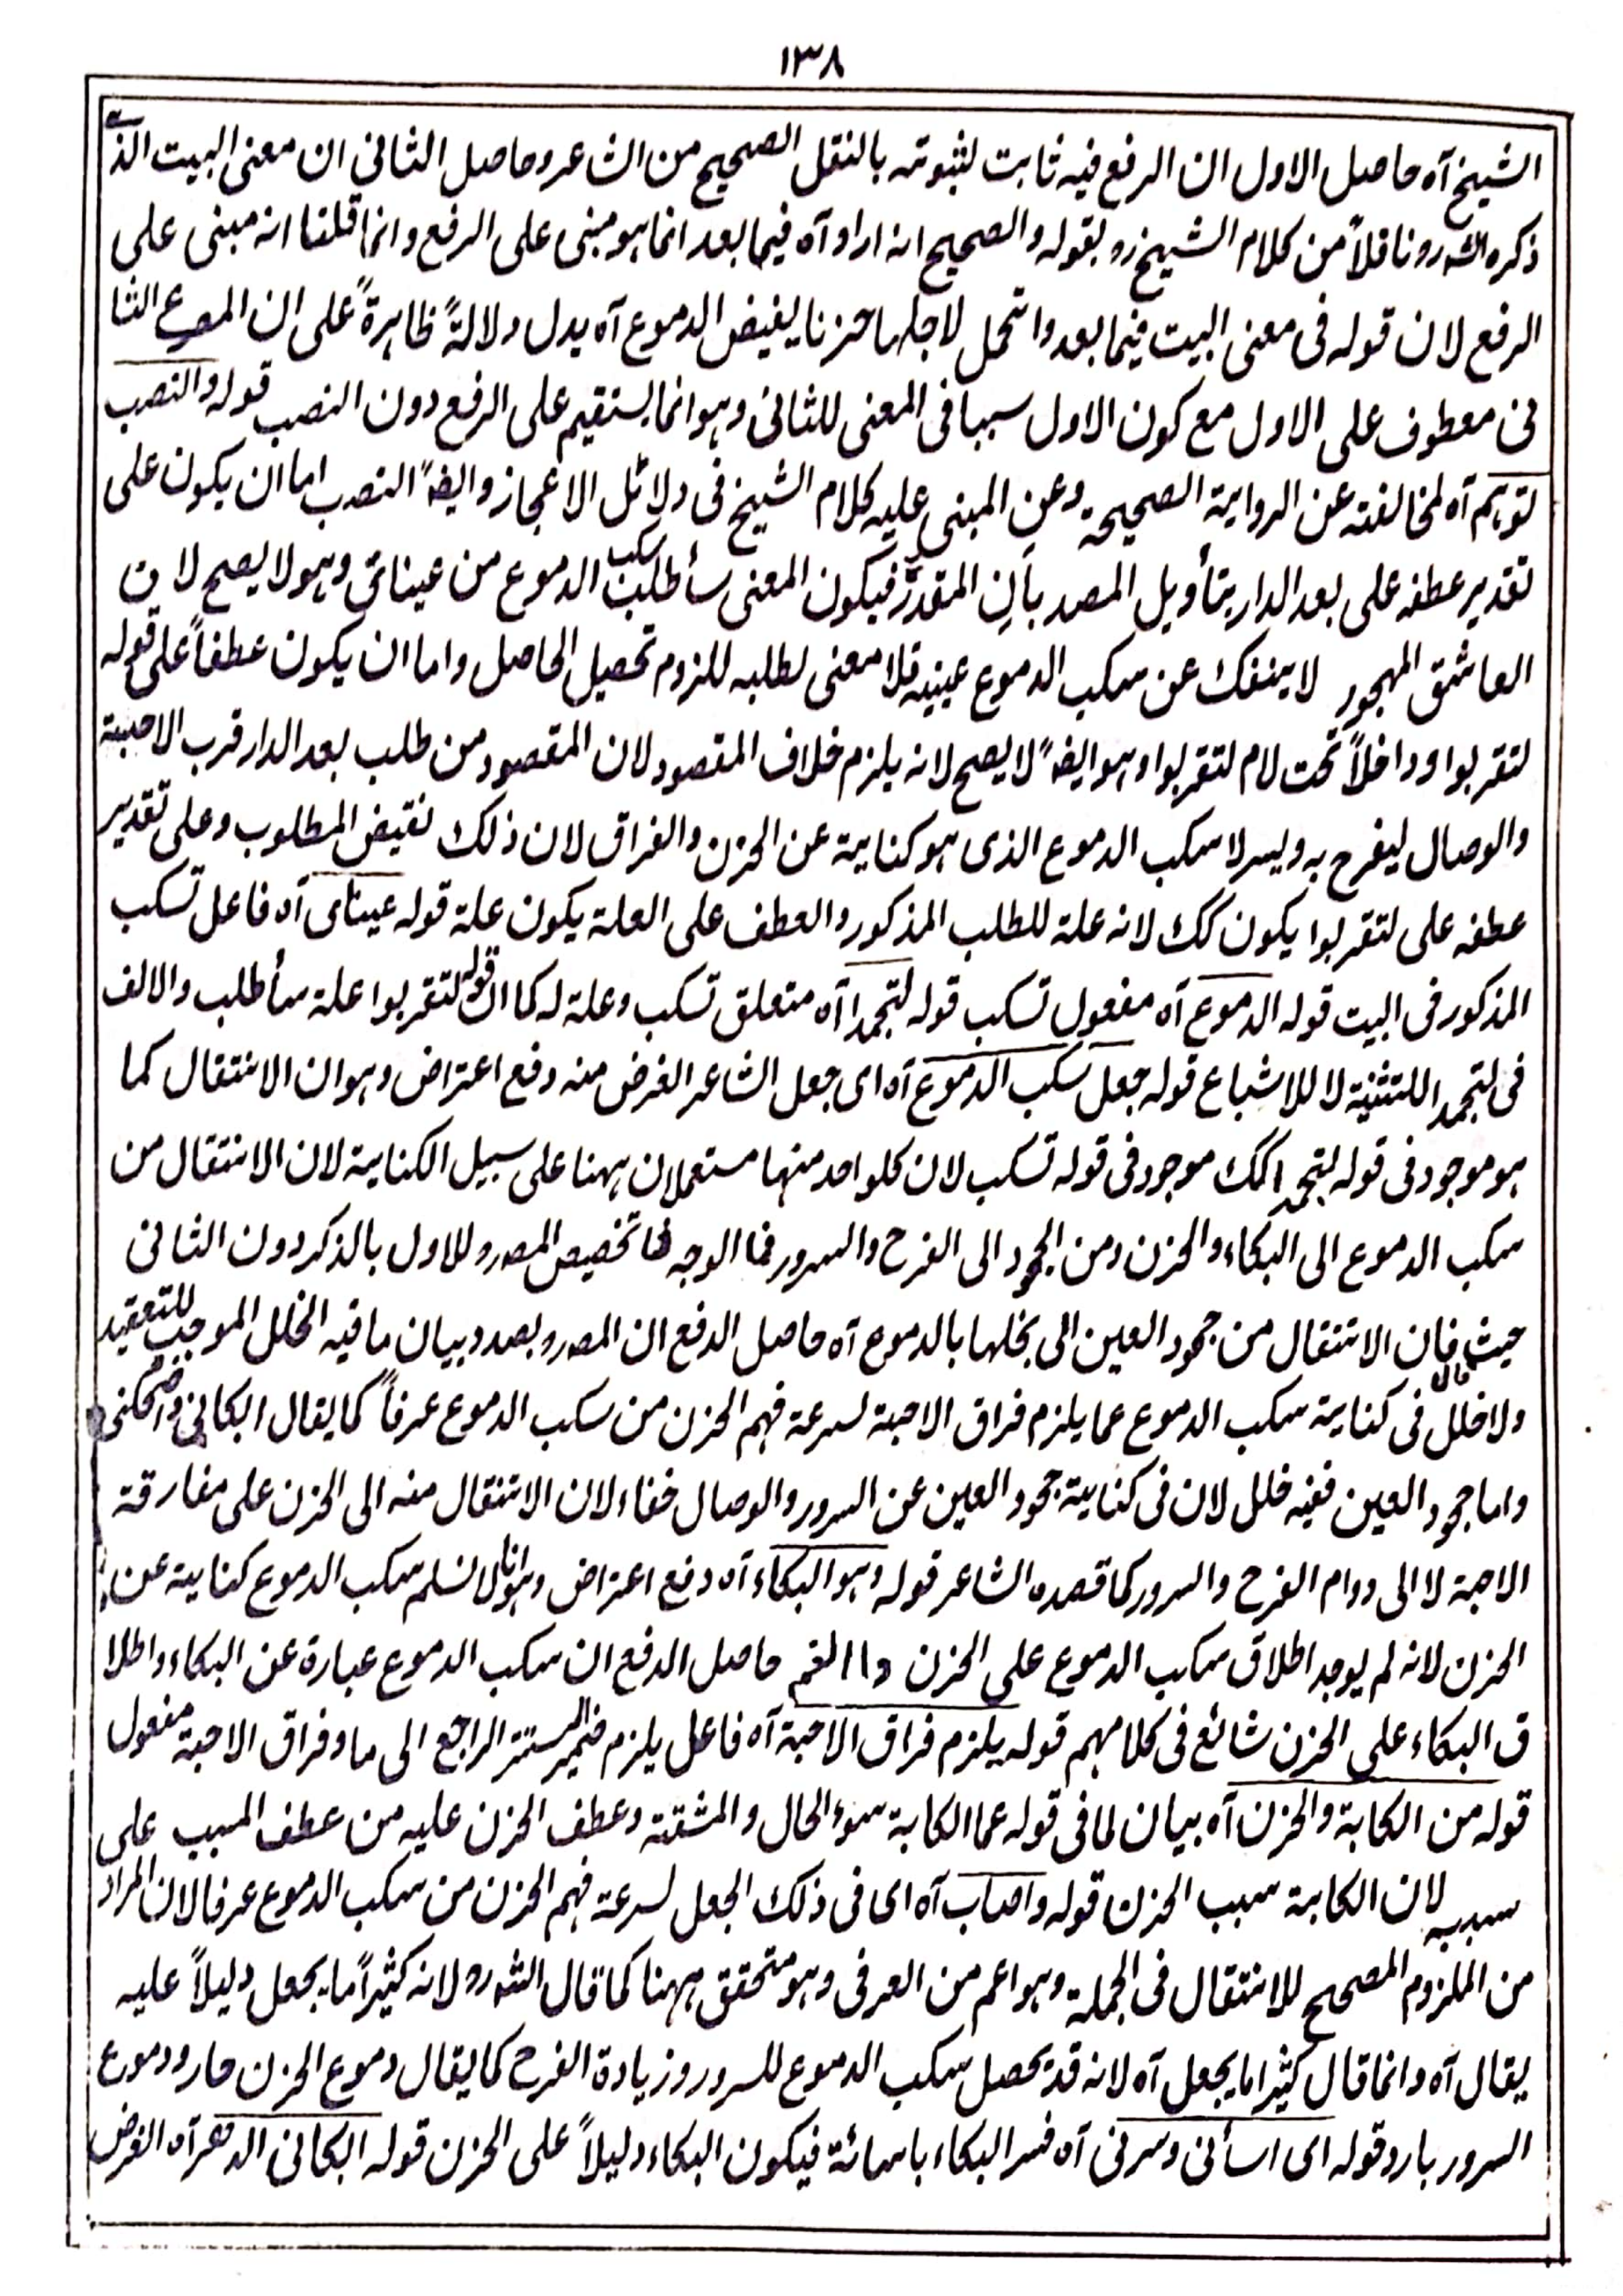 ١٣٨
الشيخ آه حاصل الاول ان الرفع فيه ثابت لثبوته بالنقل الصحيح من الشاعر وحاصل الثاني ان معنى البيت الذى
ذكره الشه رو ناقلاً من كلام الشيخ رو بقوله والصحيح انه اراد آه فيما بعد انما هو مبنى على الرفع وانما قلنا انه مبنى على
الرفع لان قوله فى معنى البيت فيما بعد واتحمل لاجلها حزنا يفيض الدموع آه يدل دلالةً ظاهرةً على ان المصرع الثا
نى معطوف على الاول مع كون الاول سببا فى المعنى للثانى وهو انما يستقيم على الرفع دون النصب قوله والنصب
توهم آه لمخالفته عن الرواية الصحيحة وعن المبنى عليه كلام الشيخ فى دلائل الاعجاز وايضاً النصب اما ان يكون على
تقدير عطفه على بعد الدار بتأويل المصدر بأن المقدر فيكون المعنى سأطلب سكب الدموع من عيناتى وهو لا يصح لان
العاشق المهجور لا ينفك عن سكب الدموع عينيه فلا معنى لطلبه للزوم تحصيل الحاصل واما ان يكون عطفاً على قوله
لتقربوا وداخلاً تحت لام لتقربوا وهو ايضاً لا يصح لانه يلزم خلاف المقصود لان المقصود من طلب بعد الدار قرب الاحبة
والوصال ليفرح به ويسر لا سكب الدموع الذى هو كناية عن الحزن والفراق لان ذلك نقيض المطلوب وعلى تقدير
عطفه على لتقربوا يكون كك لانه علة للطلب المذكور والعطف على العلة يكون علة قوله عيناى آه فاعل تسكب
المذكور فى البيت قوله الدموع آه مفعول تسكب قوله لتجمدا آه متعلق تسكب وعلة له كما ان قوله لتقربوا علة سأطلب والالف
فى لتجمدا للتثنية لا للاشباع قوله جعل سكب الدموع آه اى جعل الشاعر الغرض منه دفع اعتراض وهو ان الانتقال كما
هو موجود فى قوله لتجمدا كك موجود فى قوله تسكب لان كلواحد منهما مستعملان ههنا على سبيل الكناية لان الانتقال من
سكب الدموع الى البكاء والحزن ومن الجمود الى الفرح والسرور فما الوجه تخصيص المصرو للاول بالذكر دون الثانى
حيث قال فان الانتقال من جمود العين الى بخلها بالدموع آه حاصل الدفع ان المصرو بصدد بيان ما فيه الخلل الموجب للتعقيد
ولا خلل فى كناية سكب الدموع عما يلزم فراق الاحبة لسرعة فهم الحزن من سكب الدموع عرفاً كما يقال ابكانى واضحكنى
واما جمود العين ففيه خلل لان فى كناية جمود العين عن السرور والوصال خفاء لان الانتقال منه الى الحزن على مفارقة
الاحبة لا الى دوام الفرح والسرور كما قصده الشاعر قوله وهو البكاء آه دفع اعتراض وهو انا لا نسلم سكب الدموع كناية عن
الحزن لانه لم يوجد اطلاق سكب الدموع على الحزن والغم حاصل الدفع ان سكب الدموع عبارة عن البكاء واطلا
ق البكاء على الحزن شائع فى كلامهم قوله يلزم فراق الاحبة آه فاعل يلزم ضمير المستتر الراجع الى ما وفراق الاحبة مفعول
قوله من الكابة والحزن آه بيان لما فى قوله عما الكابة سوء الحال والمشقة وعطف الحزن عليه من عطف المسبب على
سببه لان الكابة سبب الحزن قوله واصاب آه اى فى ذلك الجعل لسرعة فهم الحزن من سكب الدموع عرفا لان المراد
من الملزوم المصحح للانتقال فى الجملة وهو اعم من العرفى وهو متحقق ههنا كما قال الشه رو لانه كثيراً ما يجعل دليلاً عليه
يقال آه وانما قال كثيرا ما يجعل آه لانه قد يحصل سكب الدموع للسرور وزيادة الفرح كما يقال دموع الحزن حار ودموع
السرور بارد قوله اى اسأنى وسرنى آه فسر البكاء باسائة فيكون البكاء دليلاً على الحزن قوله ابكانى الدهر آه الغرض